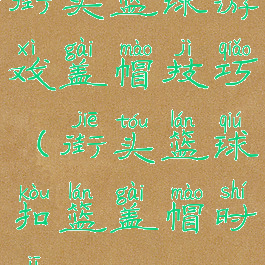 街头篮球游
xì gài mào jì qiǎo
戏盖帽技巧
jiē tóu lán qiú
（街头篮球
kòu lán gài mào shí
扣篮盖帽时
jī